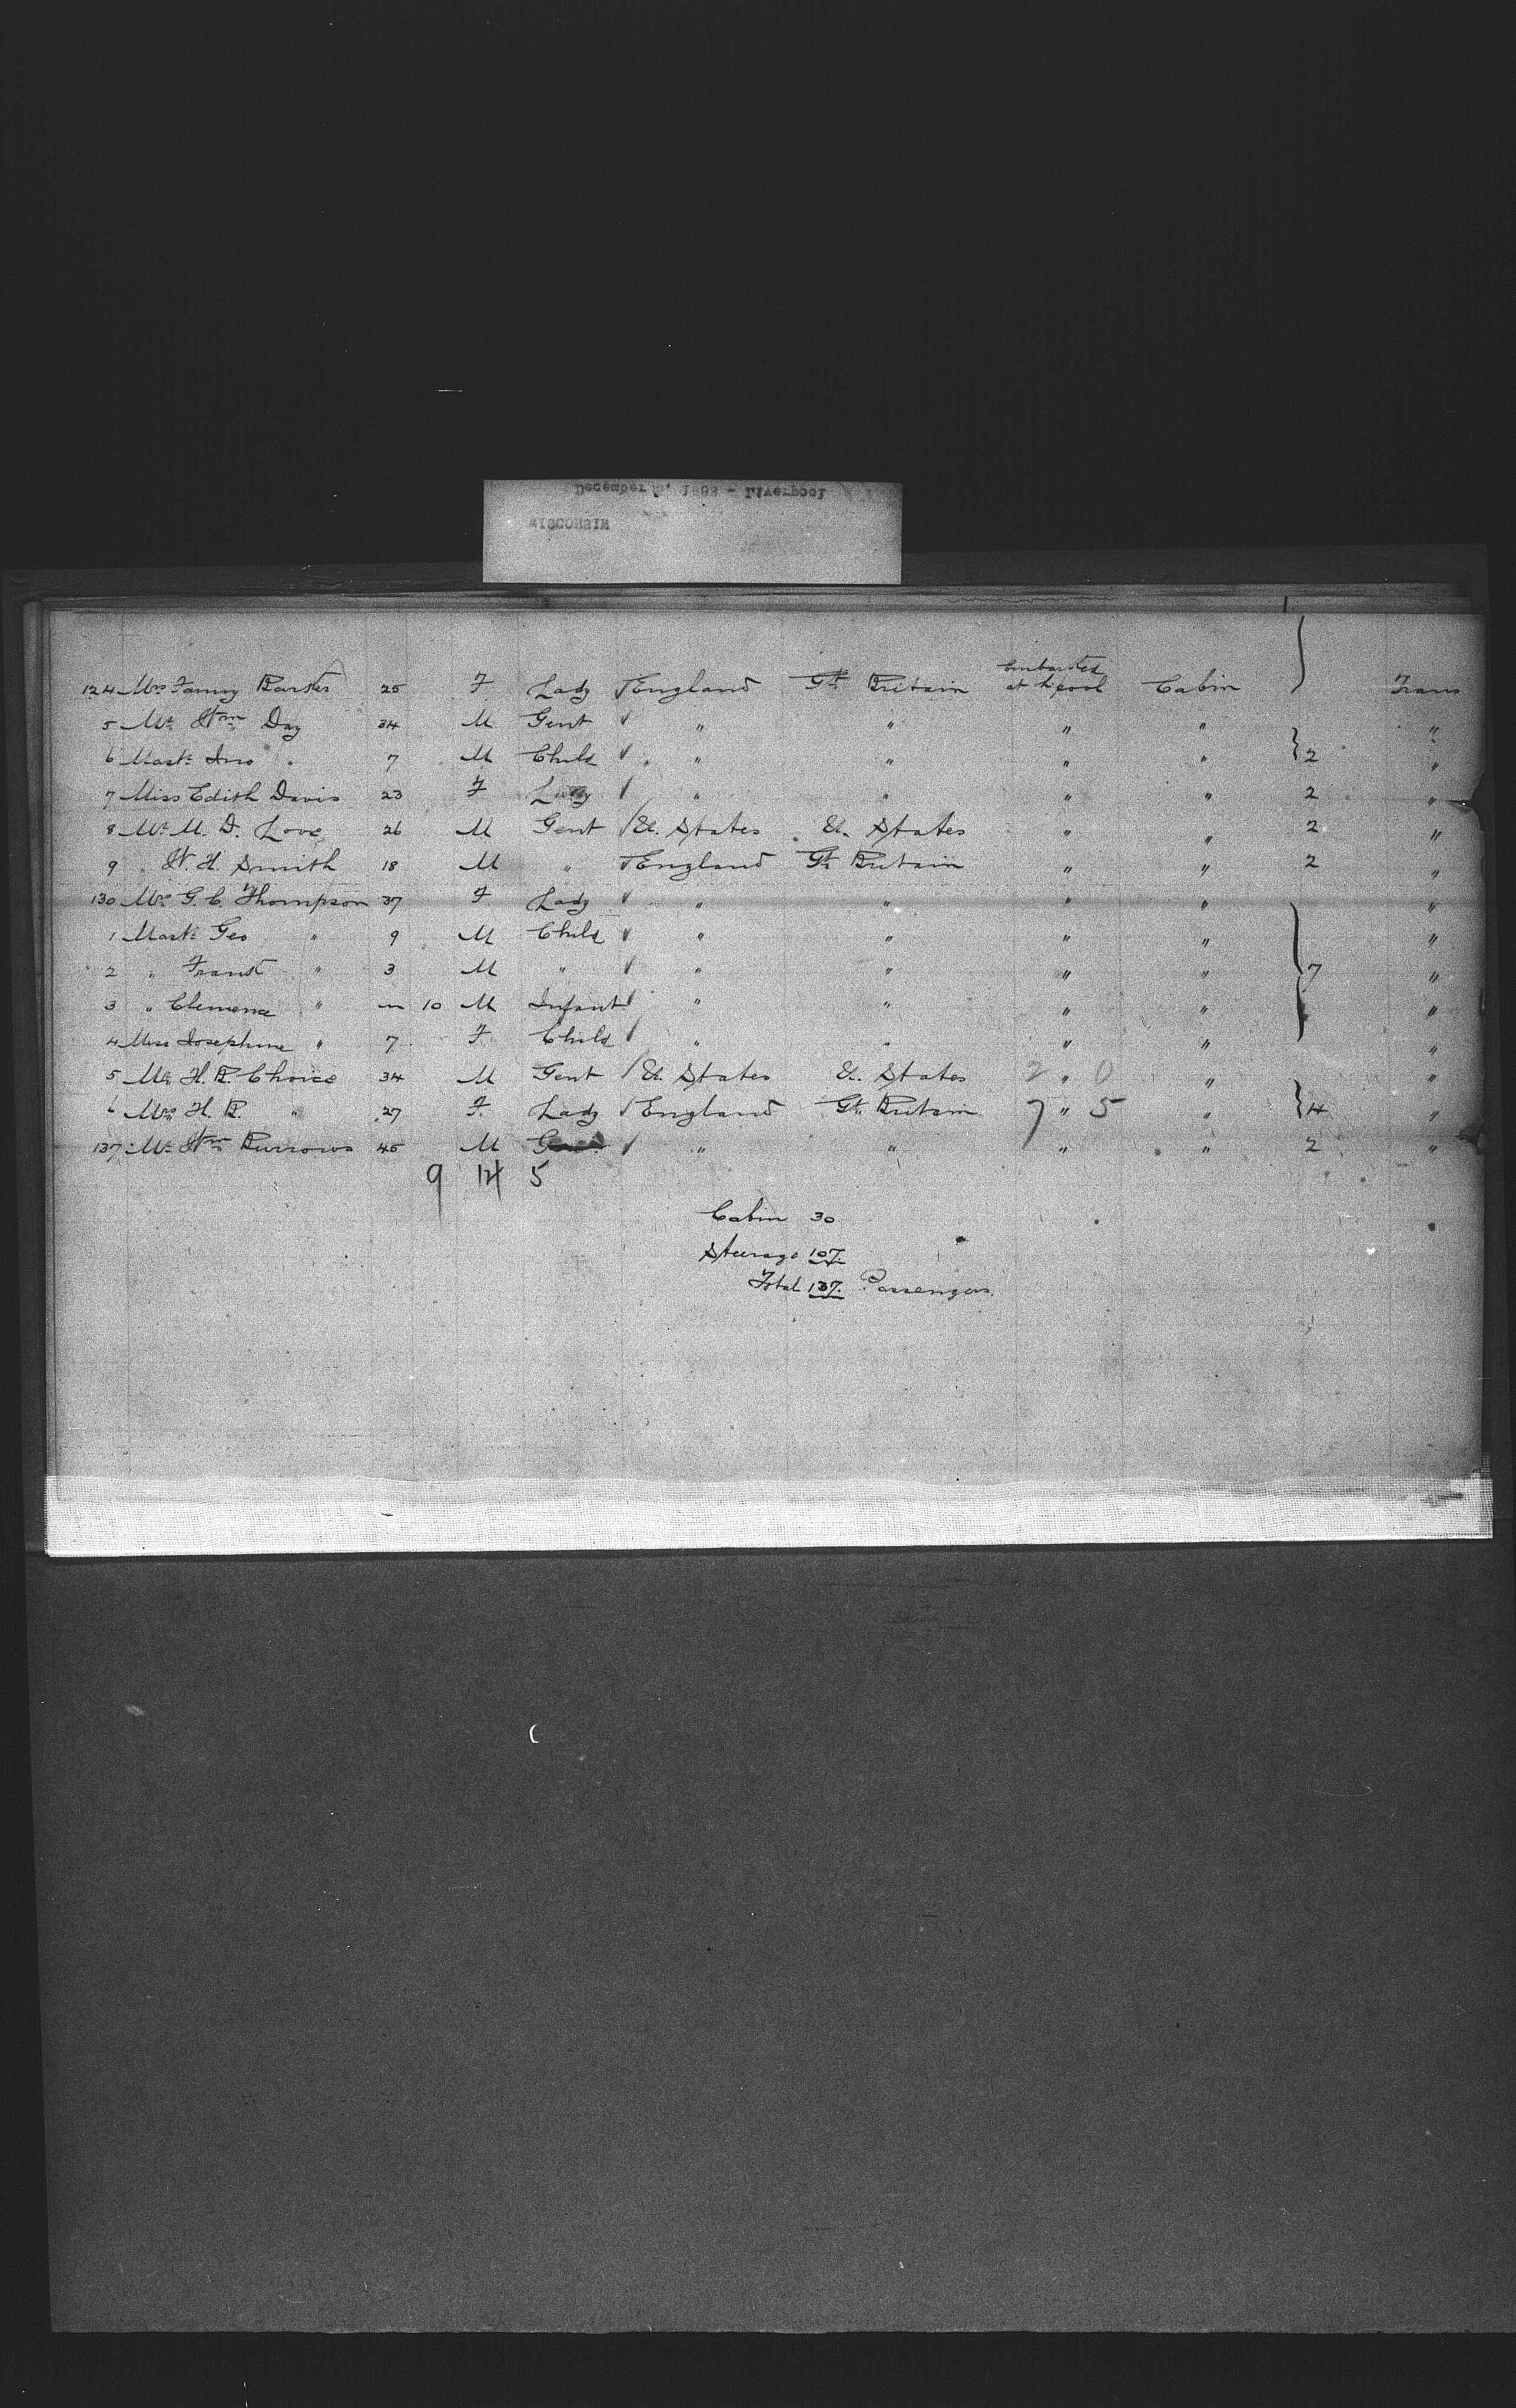 December 1893 - Liverpool
WISCONSIN
Embarked
124 Mrs Fanny 25 F Lady √ England Gt. Britain at L'pool Cabin Trans
5 Mr. Wm. Day 34 M Gent √ " " " " "
6 Mastr. Jno " 7 M Child √ " " " " } 2 "
7 Miss Edith Davis 23 F Lady √ " " " " 2 "
8 Mr. M. D. Love 26 M Gent / U. States U. States " " 2 "
9 " W. H. Smith 18 M " √ England Gt. Britain " " 2 "
130 Mrs G. C. Thompson 37 F Lady √ " " " " "
1 Mastr. Geo " 9 M Child √ " " " " "
2 " " 3 M " √ " " " " } 7 "
3 " Clemence " — 10 M Infant √ " " " " "
4 Miss Josephine " 7 F Child √ " " " " "
5 Mr. H. B. Choice 34 M Gent / U. States U. States 2 " 0 " "
6 Mrs H. B. " 27 F. Lady √ England Gt. Britain 7 " 5 " } 4 "
137 Mr. Wm. Burrows 45 M √ " " " " 2 "
9 14 5
Cabin 30
Steerage 107.
Total 137. Passengers.